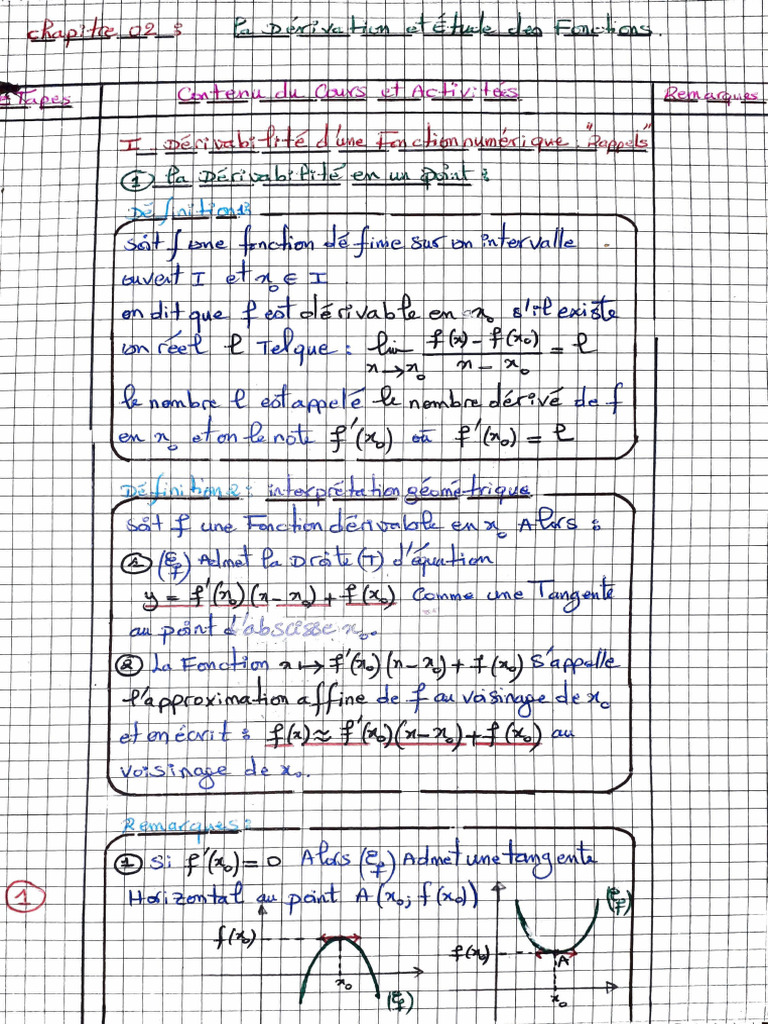 Chapitre 02 : la Dérivation et Étude des Fonctions.
Etapes
Contenu du Cours et Activitées
Remarques
I. Dérivabilité d'une Fonction numérique : "Rappels"
① la Dérivabilité en un point :
Définition 1:
Soit f une fonction définie sur un intervalle
ouvert I et x₀ ∈ I.
on dit que f est dérivable en x₀ s'il existe
un réel l Tel que : lim_{x→x₀} (f(x) - f(x₀))/(x - x₀) = l
le nombre l est appelé le nombre dérivé de f
en x₀ et on le note f'(x₀) où f'(x₀) = l
Définition 2: interprétation géométrique
Soit f une Fonction dérivable en x₀ Alors :
① (ξf) Admet la Droite (T) d'équation
y = f'(x₀)(x - x₀) + f(x₀) Comme une Tangente
au point d'abscisse x₀.
② La Fonction x ↦ f'(x₀)(x-x₀) + f(x₀) S'appelle
l'approximation affine de f au voisinage de x₀
et on écrit : f(x) ≈ f'(x₀)(x-x₀) + f(x₀) au
voisinage de x₀.
Remarques :
① Si f'(x₀) = 0 Alors (ξf) Admet une tangente
Horizontal au point A(x₀; f(x₀))
1
f(x₀)
x₀
(ξf)
(ξf)
f(x₀)
A
x₀